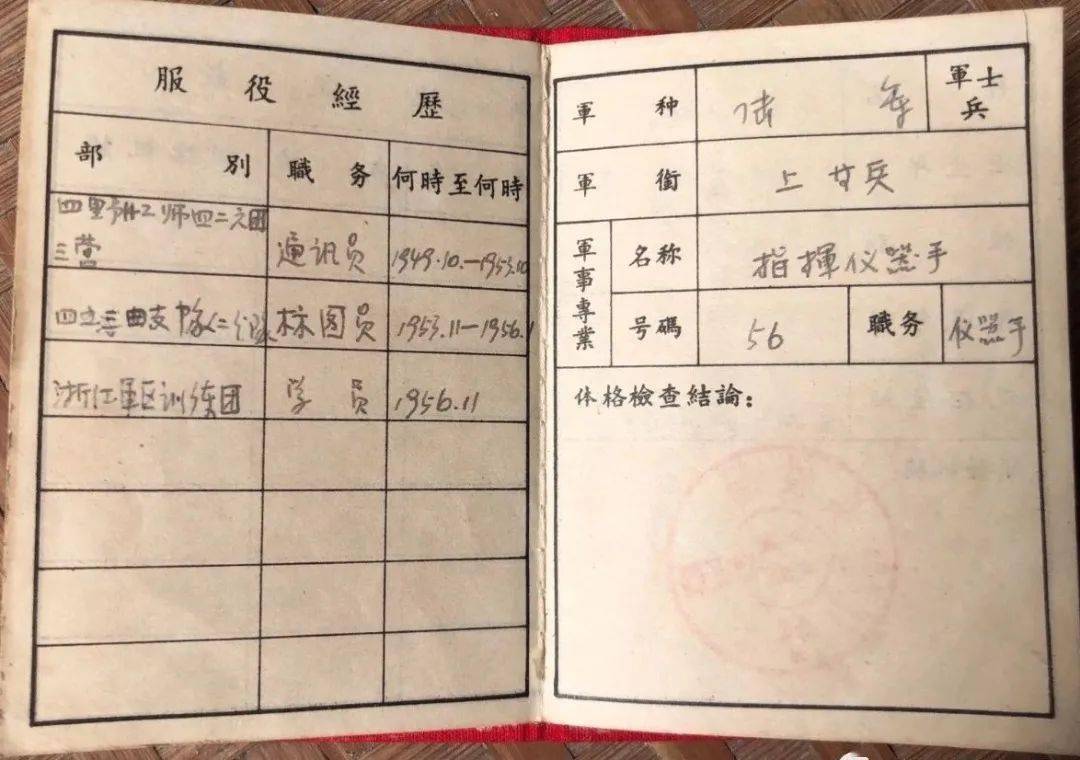 服役經歷
部別 職务 何時至何時
四野 师四二六团
三营 通訊员 1949.10.—1953.10
支隊 标图员 1953.11—1956.11
浙江軍区训练团 学员 1956.11
軍种 陆军 軍士兵
軍銜 上等兵
軍事專業 名称 指揮仪器手
号碼 56 職务 仪器手
体格檢查結論：